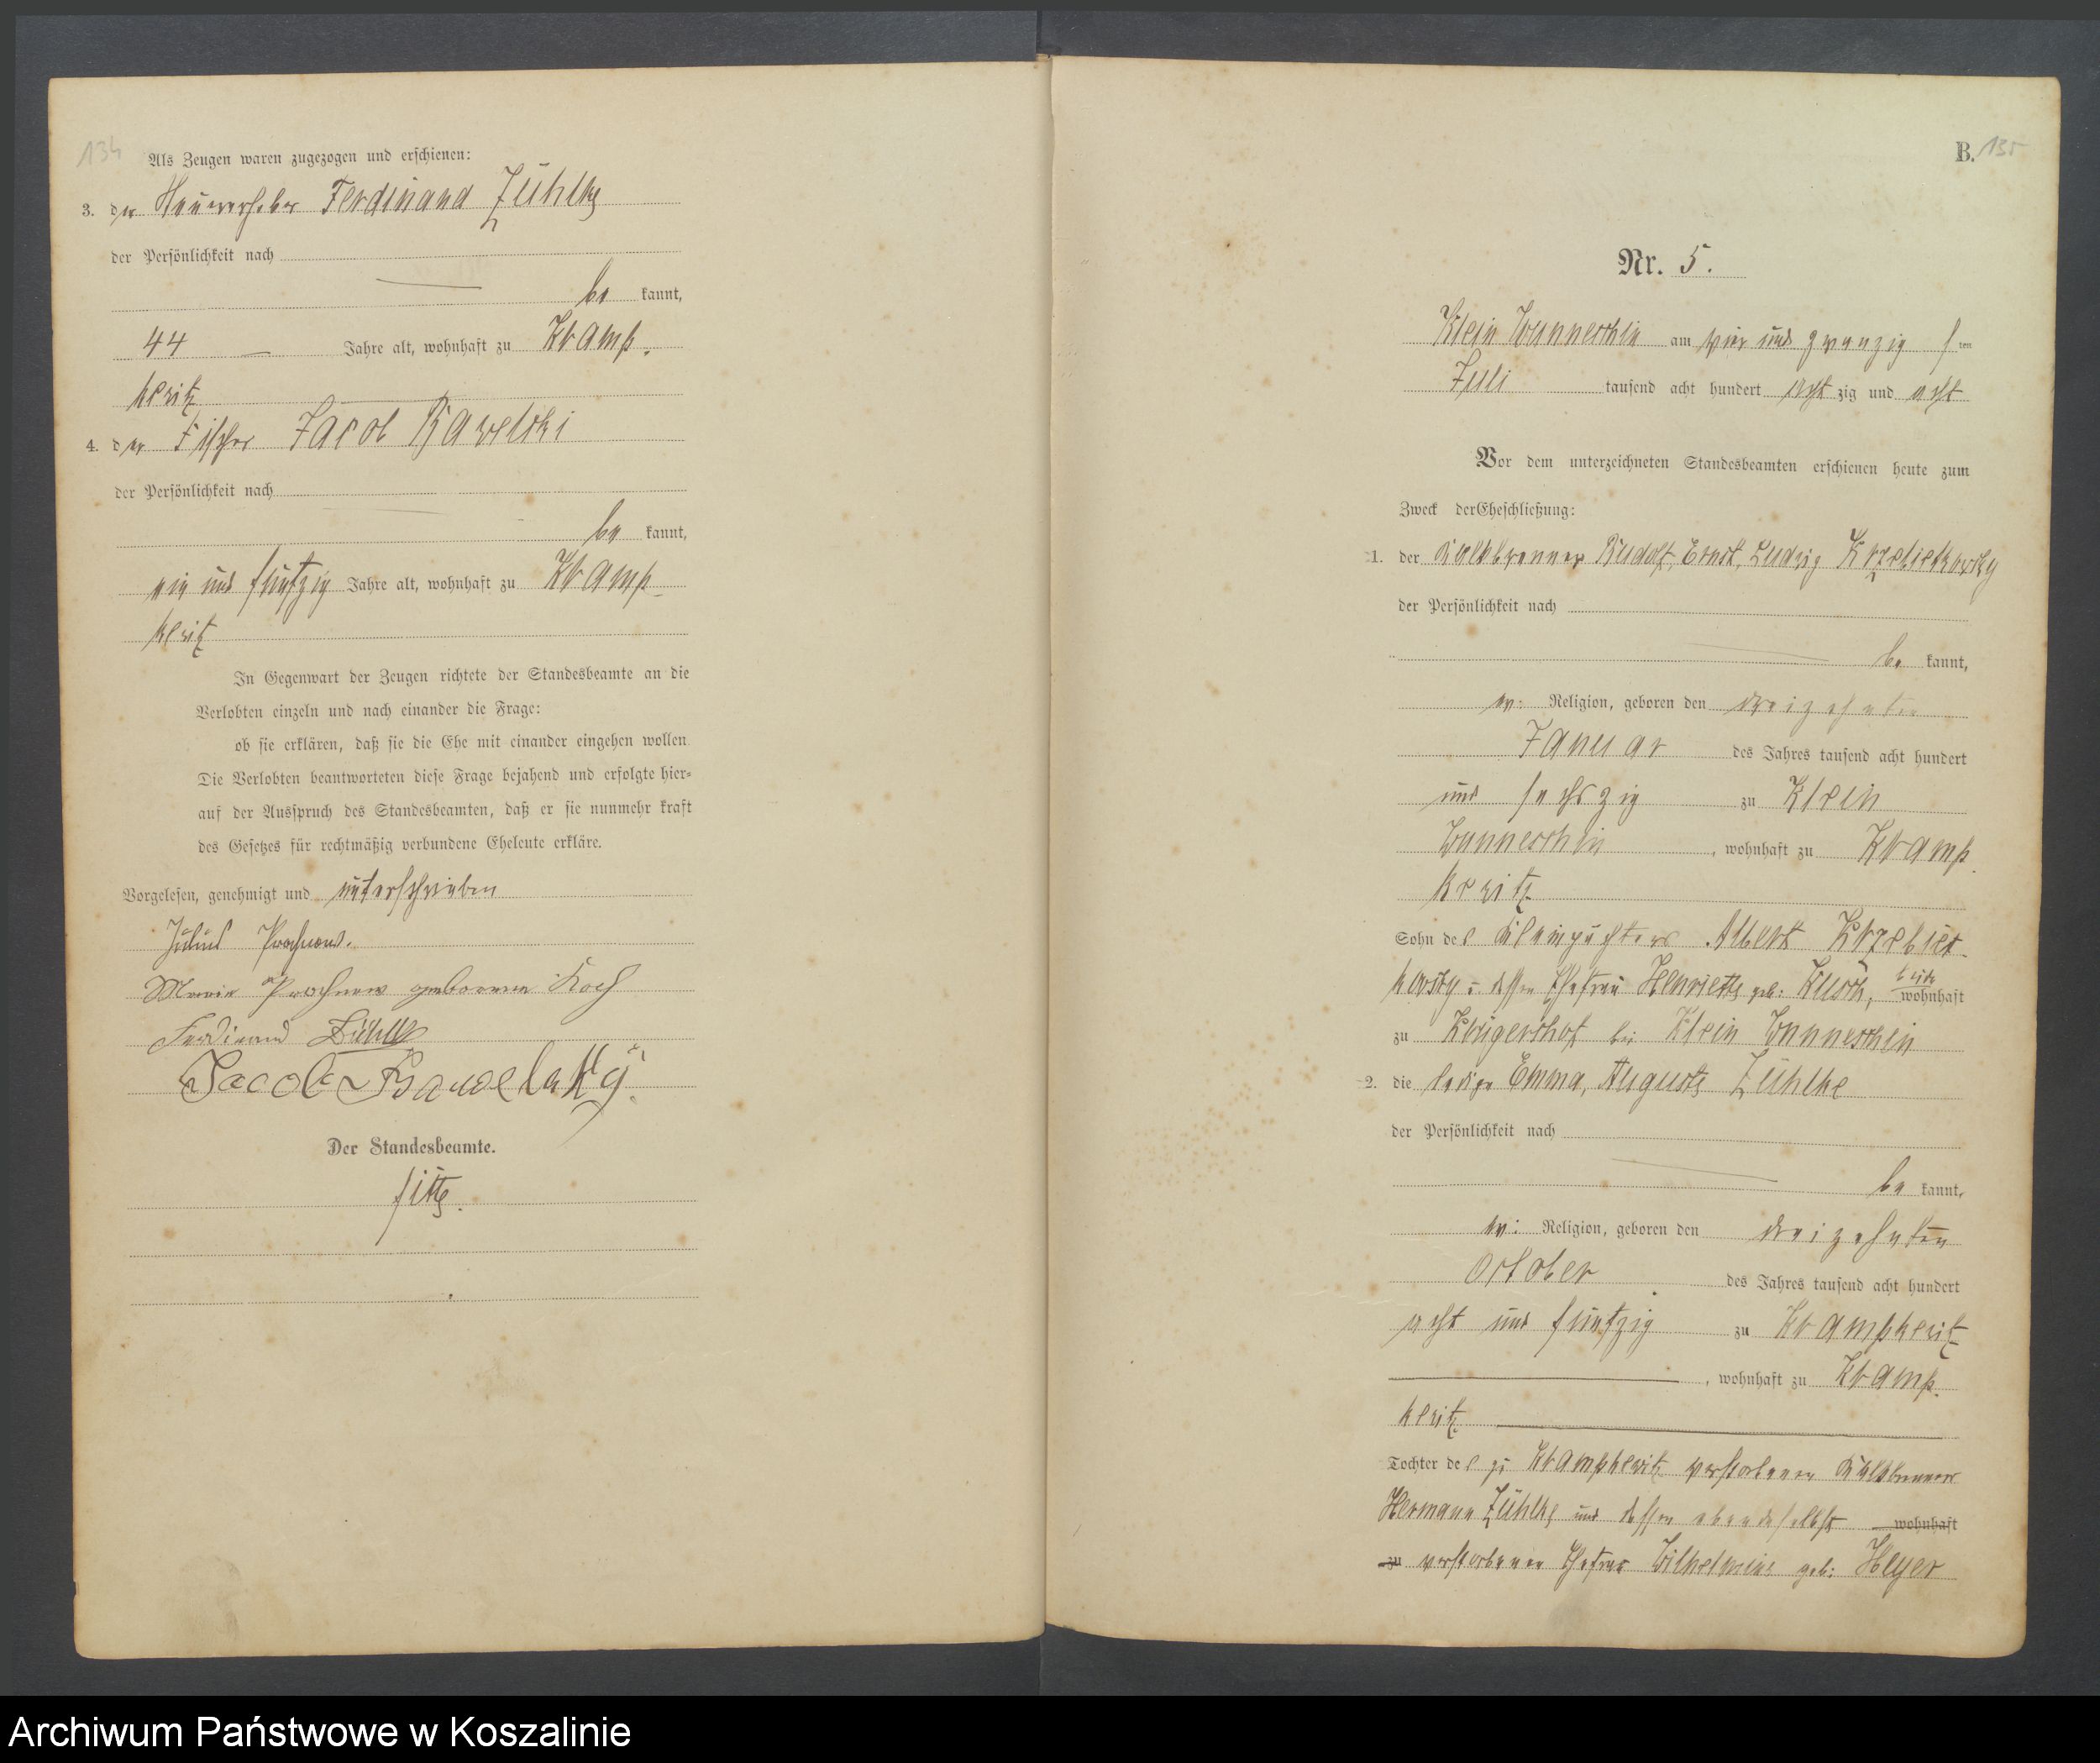 134
Als Zeugen waren zugezogen und erschienen:
3. der Ferdinand Zühlke
der Persönlichkeit nach
be kannt,
44 Jahre alt, wohnhaft zu Kramp-
keritz
4. der Fischer Jacob
der Persönlichkeit nach
be kannt,
ein und fünfzig Jahre alt, wohnhaft zu Kramp-
keritz
In Gegenwart der Zeugen richtete der Standesbeamte an die
Verlobten einzeln und nach einander die Frage:
ob sie erklären, daß sie die Ehe mit einander eingehen wollen.
Die Verlobten beantworteten diese Frage bejahend und erfolgte hier-
auf der Ausspruch des Standesbeamten, daß er sie nunmehr kraft
des Gesetzes für rechtmäßig verbundene Eheleute erkläre.
Vorgelesen, genehmigt und unterschrieben
Julius Prochnow.
Marie Prochnow geborene Koch
Ferdinand Zühlke
Jacob
Der Standesbeamte.
B. 135
Nr. 5.
Klein Wunneschin am vier und zwanzigsten
Juli tausend acht hundert acht zig und acht
Vor dem unterzeichneten Standesbeamten erschienen heute zum
Zweck der Eheschließung:
1. der Kalkbrenner Rudolf, Ernst, Ludwig Krzebietkowsky
der Persönlichkeit nach
be kannt,
ev: Religion, geboren den dreizehnten
Januar des Jahres tausend acht hundert
und sechszig zu Klein
Wunneschin, wohnhaft zu Kramp-
keritz
Sohn des Albert Krzebiet-
kowsky u. dessen Ehefrau Henriette geb: beide wohnhaft
zu Krügershof bei Klein Wunneschin
2. die ledige Emma, Auguste Zühlke
der Persönlichkeit nach
be kannt,
ev: Religion, geboren den dreizehnten
October des Jahres tausend acht hundert
acht und fünfzig zu Krampkeritz
, wohnhaft zu Kramp-
keritz
Tochter des zu Krampkeritz verstorbenen Kalkbrenners
Hermann Zühlke und dessen ebendaselbst wohnhaft
zu verstorbenen Ehefrau Wilhelmine geb: Heyer
Archiwum Państwowe w Koszalinie